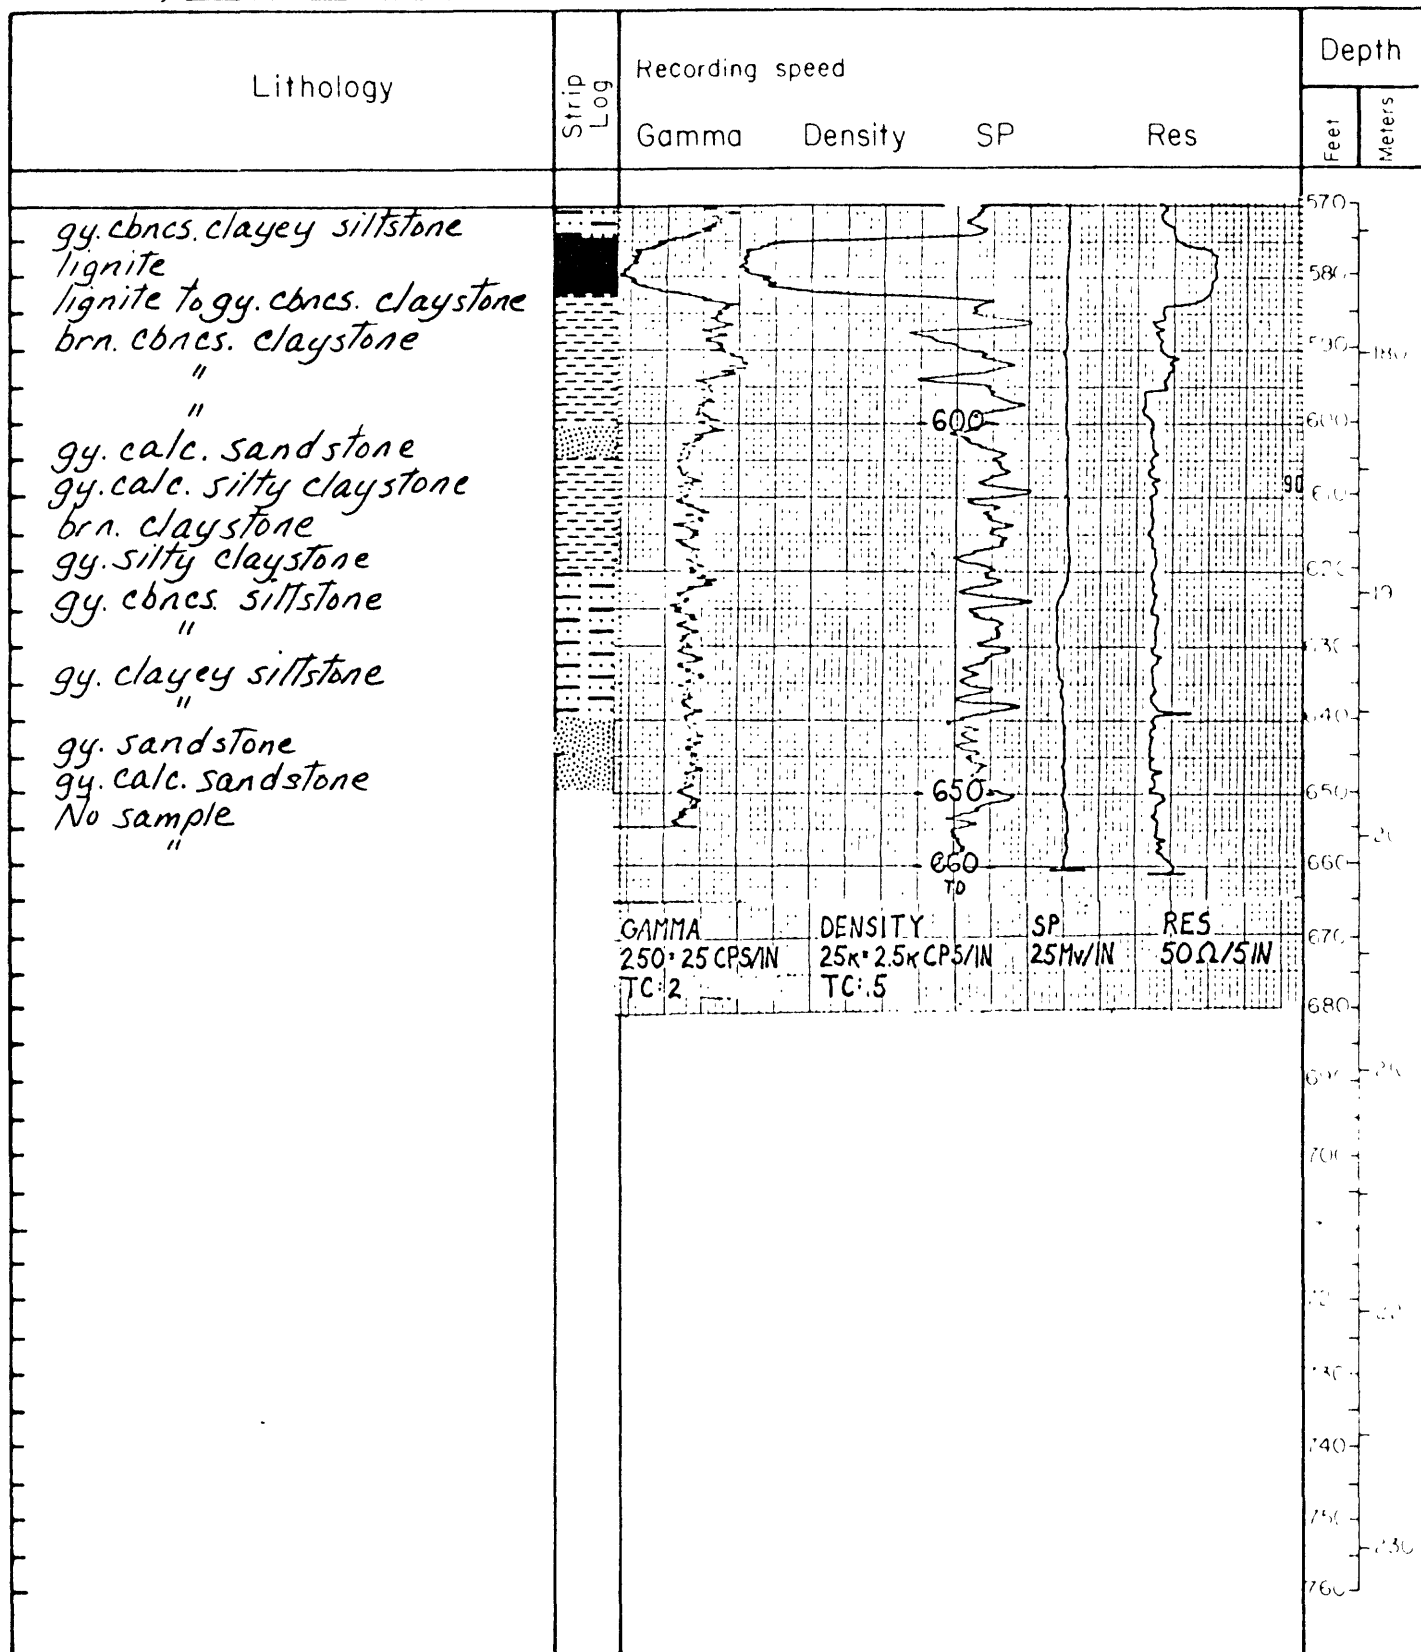 Lithology
Strip Log
Recording speed
Gamma Density SP Res
Depth
Feet
Meters
gy. cbncs. clayey siltstone
lignite
lignite to gy. cbncs. claystone
brn. cbncs. claystone
"
"
gy. calc. sandstone
gy. calc. silty claystone
brn. claystone
gy. silty claystone
gy. cbncs. siltstone
"
gy. clayey siltstone
"
gy. sandstone
gy. calc. sandstone
No sample
"
600
650
660
TD
90
GAMMA
250 · 25 CPS/IN
TC: 2
DENSITY
25K · 2.5K CPS/IN
TC: .5
SP
25 MV/IN
RES
50 Ω/5 IN
570
580
590
180
600
610
620
640
650
660
670
680
700
740
750
230
760